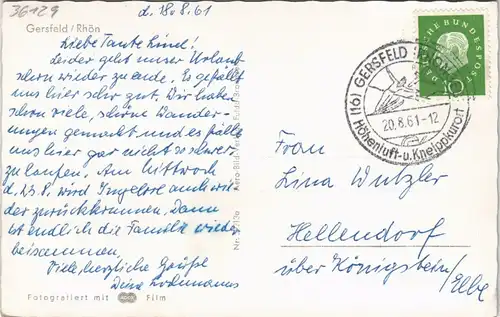 36129
d. 18.8.61
Gersfeld / Rhön
Liebe Tante Lina!
Leider geht unser Urlaub
schon wieder zu ende. Es gefällt
uns hier sehr gut. Wir haben
schon viele, schöne Wander-
ungen gemacht und es fällt
uns hier gar nicht so schwer
zu laufen. Am Mittwoch
d. 23.8. wird Ingelore auch wie-
der zurückkommen. Dann
ist endlich die Familie wieder
beisammen.
Viele, herzliche Grüße
Deine
Fotografiert mit Film
Nr.
DEUTSCHE BUNDESPOST
10
(16) GERSFELD
20.8.61-12
Höhenluft-u. Kneippkurort
Frau
Lina Wutzler
Hellendorf
über Königstein/
Elbe